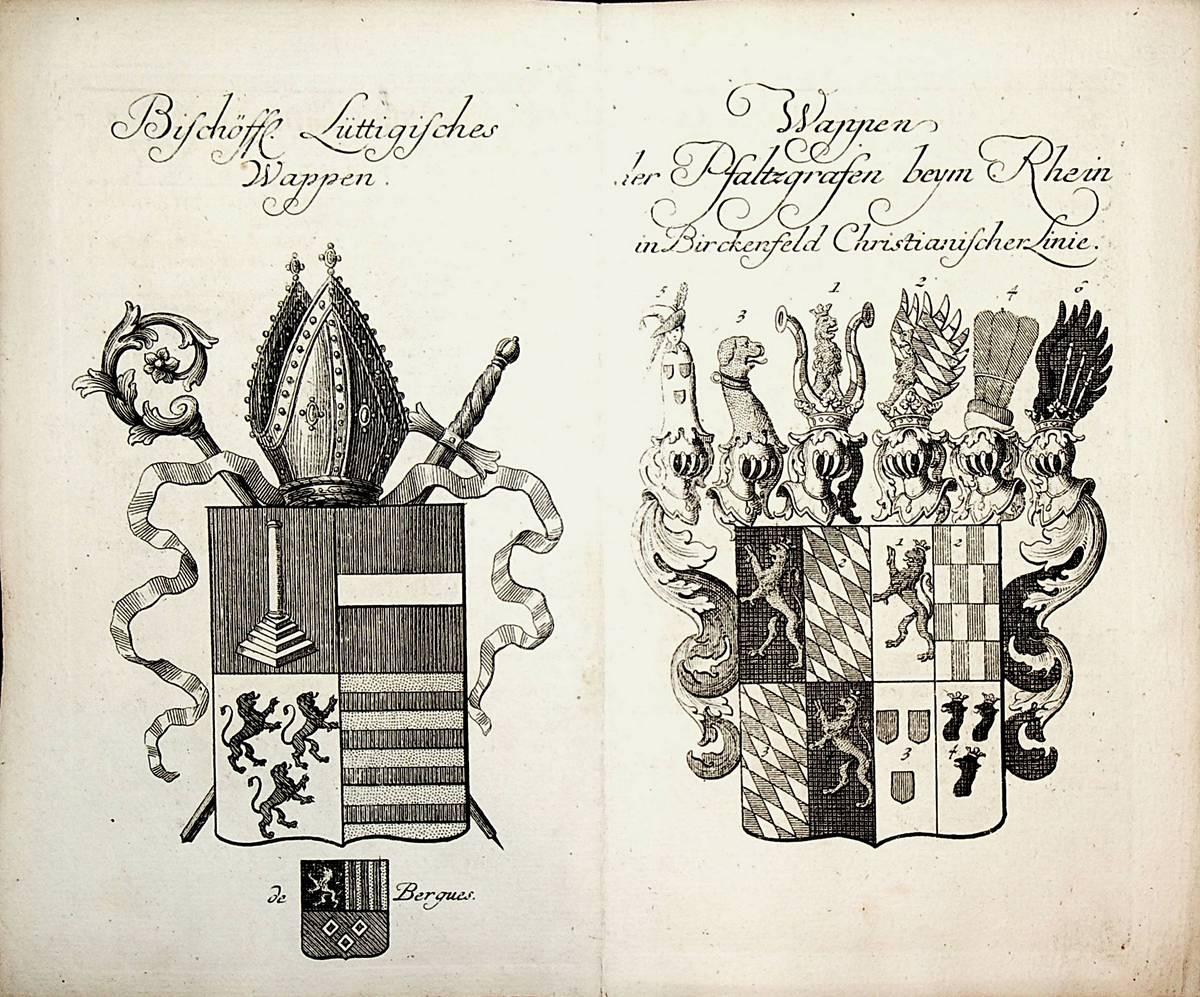 Bischöffl. Lüttigisches
Wappen.
de Bergues.
Wappen
der Pfaltzgrafen beym Rhein
in Birckenfeld Christianischer Linie.
5 3 1 2 4 6
1 2
2
3
3
4